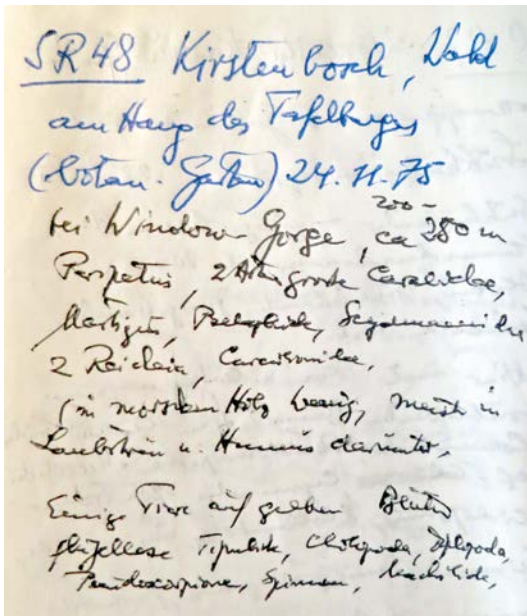 SR48 Kirstenbosch, Wald
am Hang des Tafelberges
(botan. Garten) 24.11.75
200-
bei Window Gorge, ca 280 m
Peripatus, 2 Arten grosse Carabidae,
Pselaphidae, Scydmaenidae
2 Carabidae,
(in morschem Holz wenig, meist in
Laubstreu u. Humus darunter.
Einige Tiere auf gelben Blüten
flügellose Tipulide, Chilopoda, Diplopoda,
Pseudoscorpione, Spinnen, Machilide,